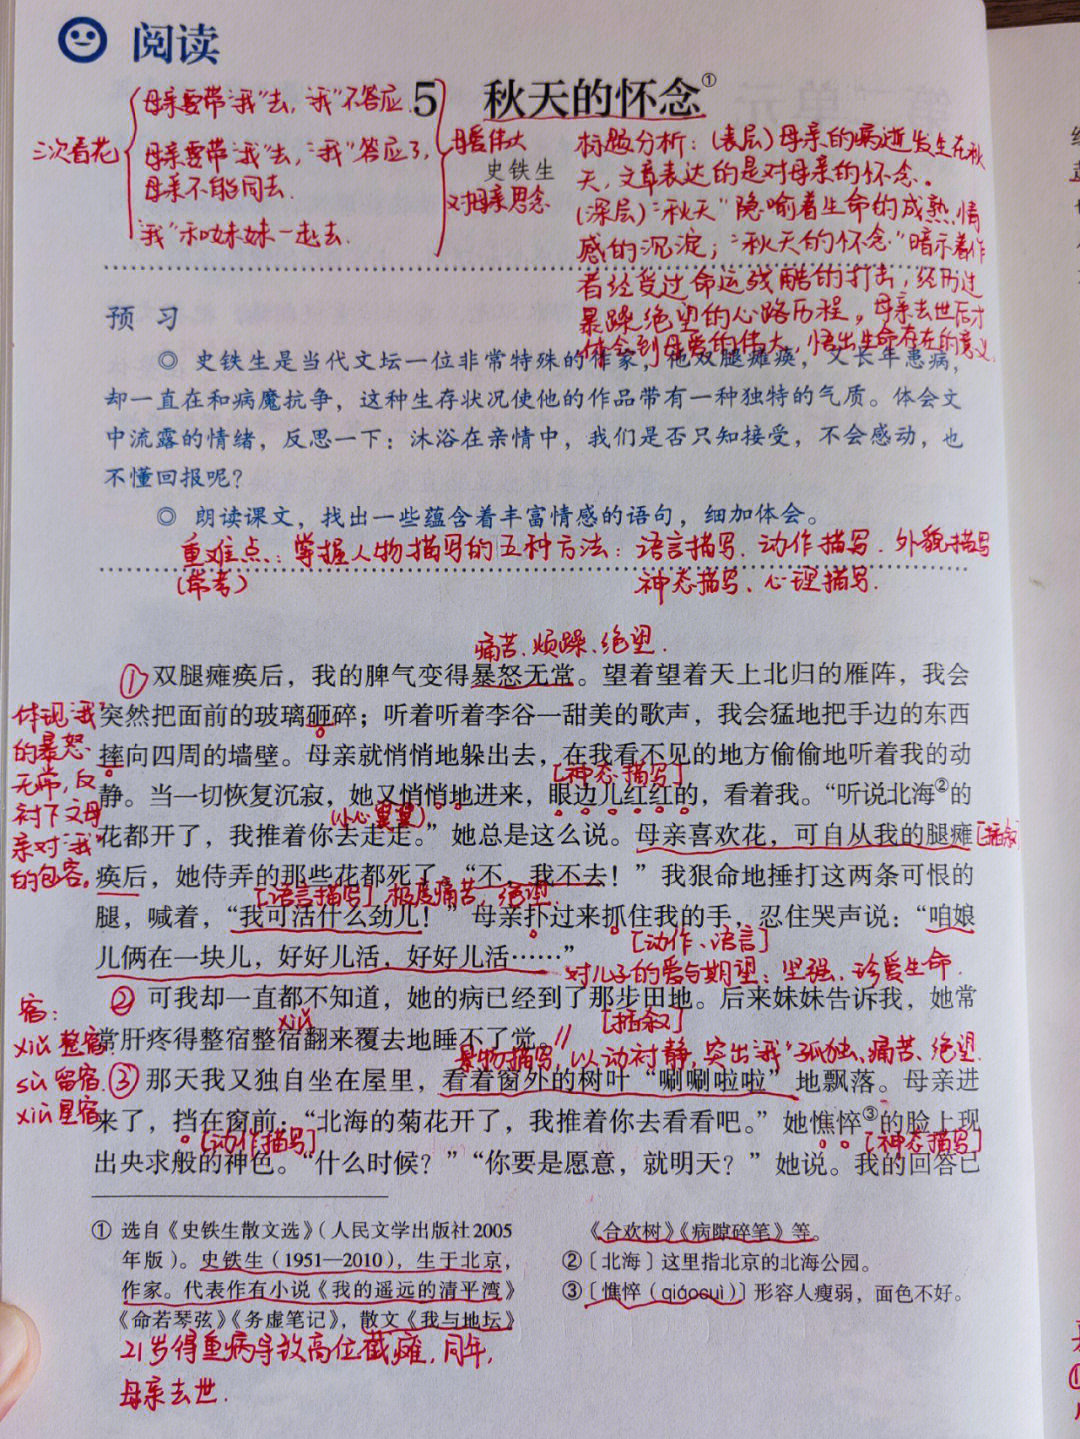 阅读
5 秋天的怀念①
史铁生
三次看花
母亲要带“我”去,“我”不答应.
母亲要带“我”去,“我”答应了,
母亲不能同去.
“我”和妹妹一起去.
母爱伟大
对母亲思念
标题分析:(表层)母亲的病逝发生在秋
天,文章表达的是对母亲的怀念。
(深层)“秋天”隐喻着生命的成熟,情
感的沉淀;“秋天的怀念”暗示着作
者经受过命运残酷的打击,经历过
暴躁绝望的心路历程,母亲去世后才
体会到母爱的伟大,悟出生命存在的意义.
预 习
◎ 史铁生是当代文坛一位非常特殊的作家,他双腿瘫痪,又长年患病,
却一直在和病魔抗争,这种生存状况使他的作品带有一种独特的气质。体会文
中流露的情绪,反思一下:沐浴在亲情中,我们是否只知接受,不会感动,也
不懂回报呢?
◎ 朗读课文,找出一些蕴含着丰富情感的语句,细加体会。
重难点:掌握人物描写的五种方法:语言描写、动作描写.外貌描写
(常考)
神态描写、心理描写.
痛苦、烦躁、绝望.
①双腿瘫痪后,我的脾气变得暴怒无常。望着望着天上北归的雁阵,我会
突然把面前的玻璃砸碎;听着听着李谷一甜美的歌声,我会猛地把手边的东西
摔向四周的墙壁。母亲就悄悄地躲出去,在我看不见的地方偷偷地听着我的动
[神态描写]
静。当一切恢复沉寂,她又悄悄地进来,眼边儿红红的,看着我。“听说北海②的
(小心翼翼)
花都开了,我推着你去走走。”她总是这么说。母亲喜欢花,可自从我的腿瘫
[插叙]
痪后,她侍弄的那些花都死了。“不,我不去!”我狠命地捶打这两条可恨的
[语言描写] 极度痛苦、绝望.
腿,喊着,“我可活什么劲儿!”母亲扑过来抓住我的手,忍住哭声说:“咱娘
[动作、语言]
儿俩在一块儿,好好儿活,好好儿活……”
对儿子的爱与期望:坚强、珍爱生命.
体现“我”
的暴怒
无常,反
衬下文母
亲对“我”
的包容。
② 可我却一直都不知道,她的病已经到了那步田地。后来妹妹告诉我,她常
xiǔ
[插叙]
常肝疼得整宿整宿翻来覆去地睡不了觉。
宿:
xiǔ 整宿.
sù 留宿.
xiù 星宿
景物描写,以动衬静,突出“我”孤独、痛苦、绝望.
③ 那天我又独自坐在屋里,看着窗外的树叶“唰唰啦啦”地飘落。母亲进
来了,挡在窗前:“北海的菊花开了,我推着你去看看吧。”她憔悴③的脸上现
[动作描写]
[神态描写]
出央求般的神色。“什么时候?”“你要是愿意,就明天?”她说。我的回答已
① 选自《史铁生散文选》(人民文学出版社2005
年版)。史铁生(1951—2010),生于北京,
作家。代表作有小说《我的遥远的清平湾》
《命若琴弦》《务虚笔记》,散文《我与地坛》
《合欢树》《病隙碎笔》等。
②〔北海〕这里指北京的北海公园。
③〔憔悴(qiáocuì)〕形容人瘦弱,面色不好。
21岁得重病导致高位截瘫,同年,
母亲去世.